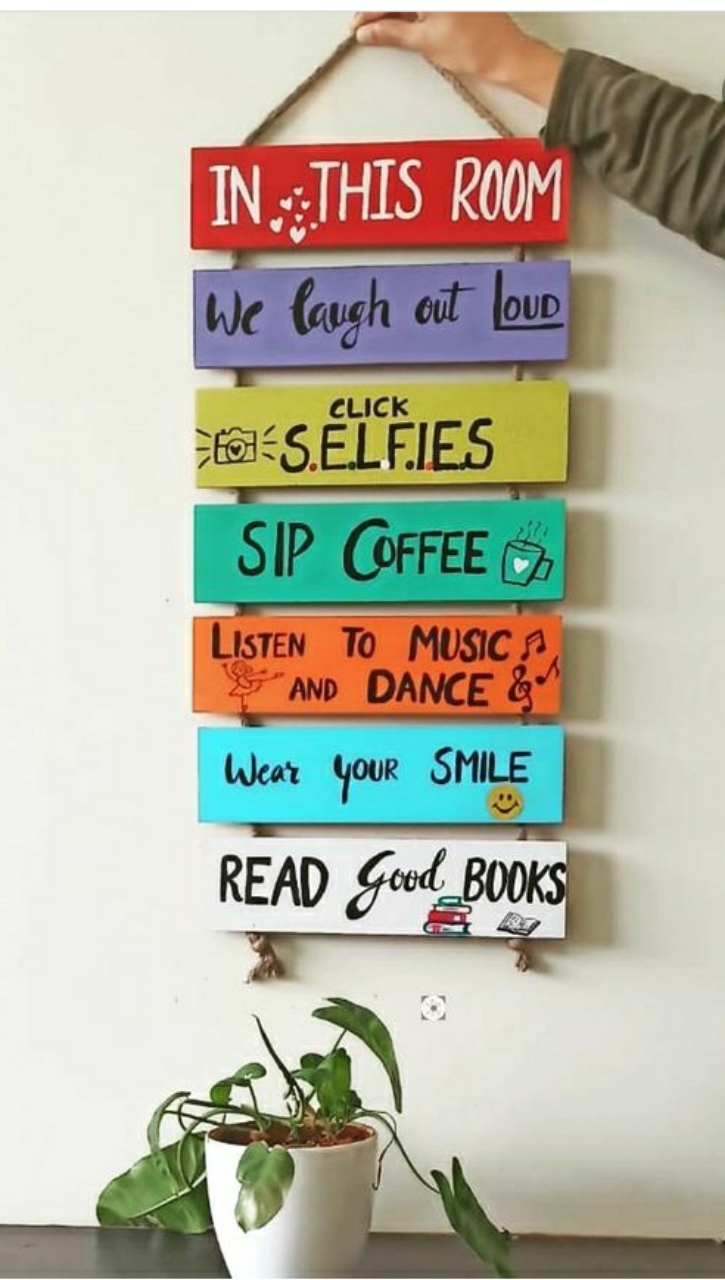 IN THIS ROOM
We laugh out LOUD
CLICK
S.E.L.F.I.E.S
SIP COFFEE
LISTEN TO MUSIC
AND DANCE
Wear YOUR SMILE
READ Good BOOKS